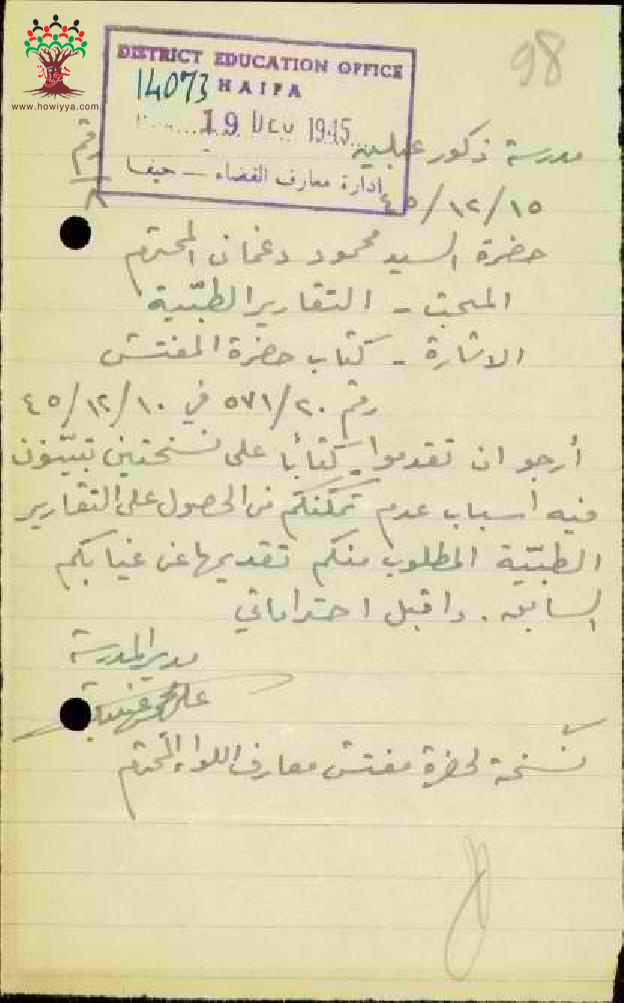 www.howiyya.com
98
DISTRICT EDUCATION OFFICE
14073 HAIFA
19 DEC 1945
ادارة معارف القضاء — حيفا
مدرسة ذكور عبلين
رقم
٨
٤٥/١٢/١٥
حضرة السيد محمود دغمان المحترم
المبحث - التقارير الطبّية
الاشارة - كتاب حضرة المفتش
رقم ٥٧١/٢٠ في ٤٥/١٢/١٠
أرجو ان تقدموا كتابًا على نسختين تبيّنون
فيه اسباب عدم تمكنكم من الحصول على التقارير
الطبّية المطلوب منكم تقديمها عن غيابكم
السابق. واقبل احتراماتي
مدير المدرسة
علي
نسخة لحضرة مفتش معارف اللواء المحترم